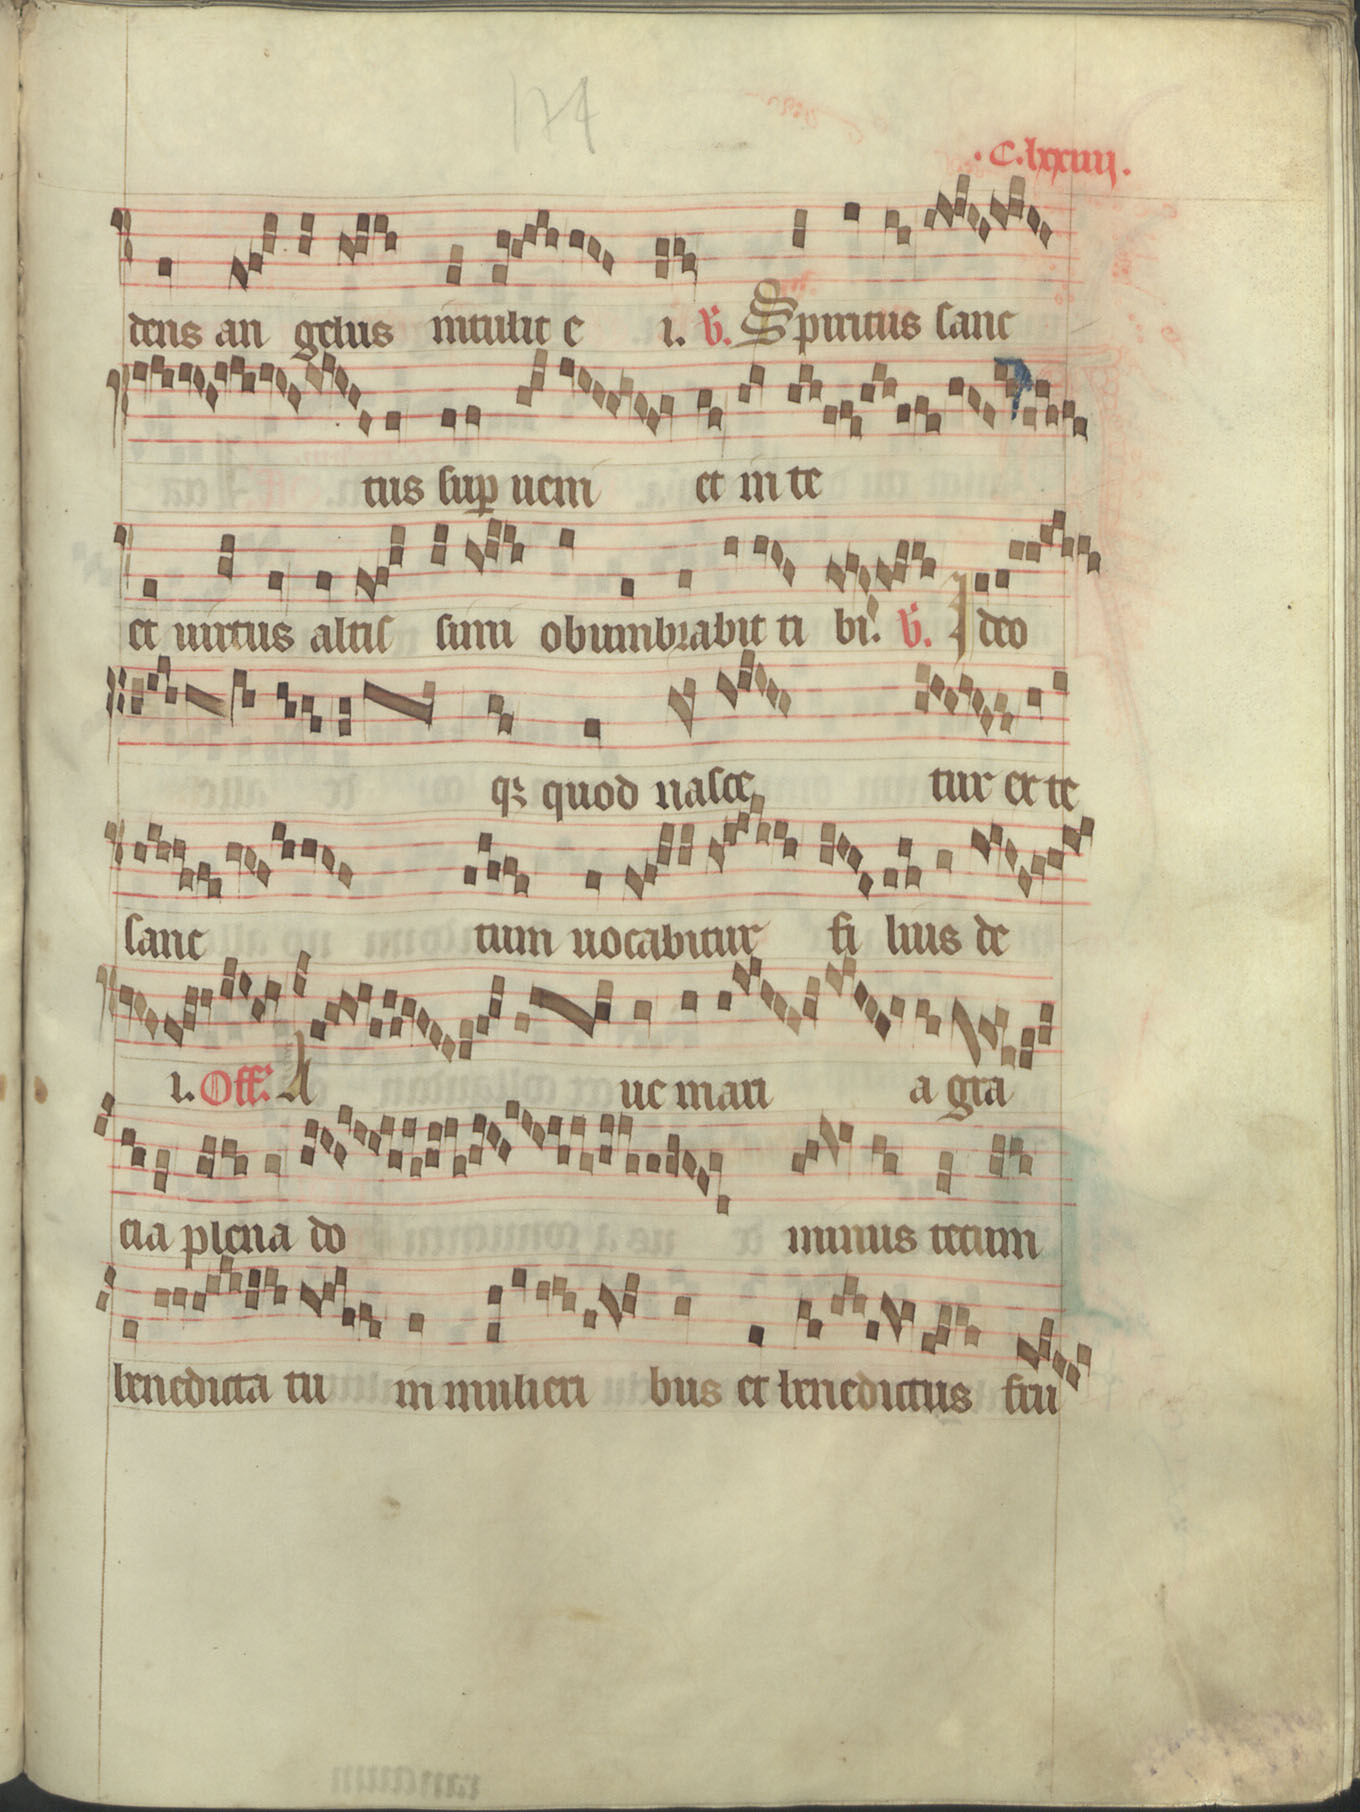 174
.C.lxxiiij.
dens an gelus intulit e i. V̄. Spiritus sanc
tus sup ueni et in te
et uirtus altis simi obumbrabit ti bi. V̄. Ideo
qꝫ quod nasce tur ex te
sanc tum uocabitur fi lius de
i. Off. A ue mari a gra
cia plena do minus tecum
benedicta tu in mulieri bus et benedictus fru